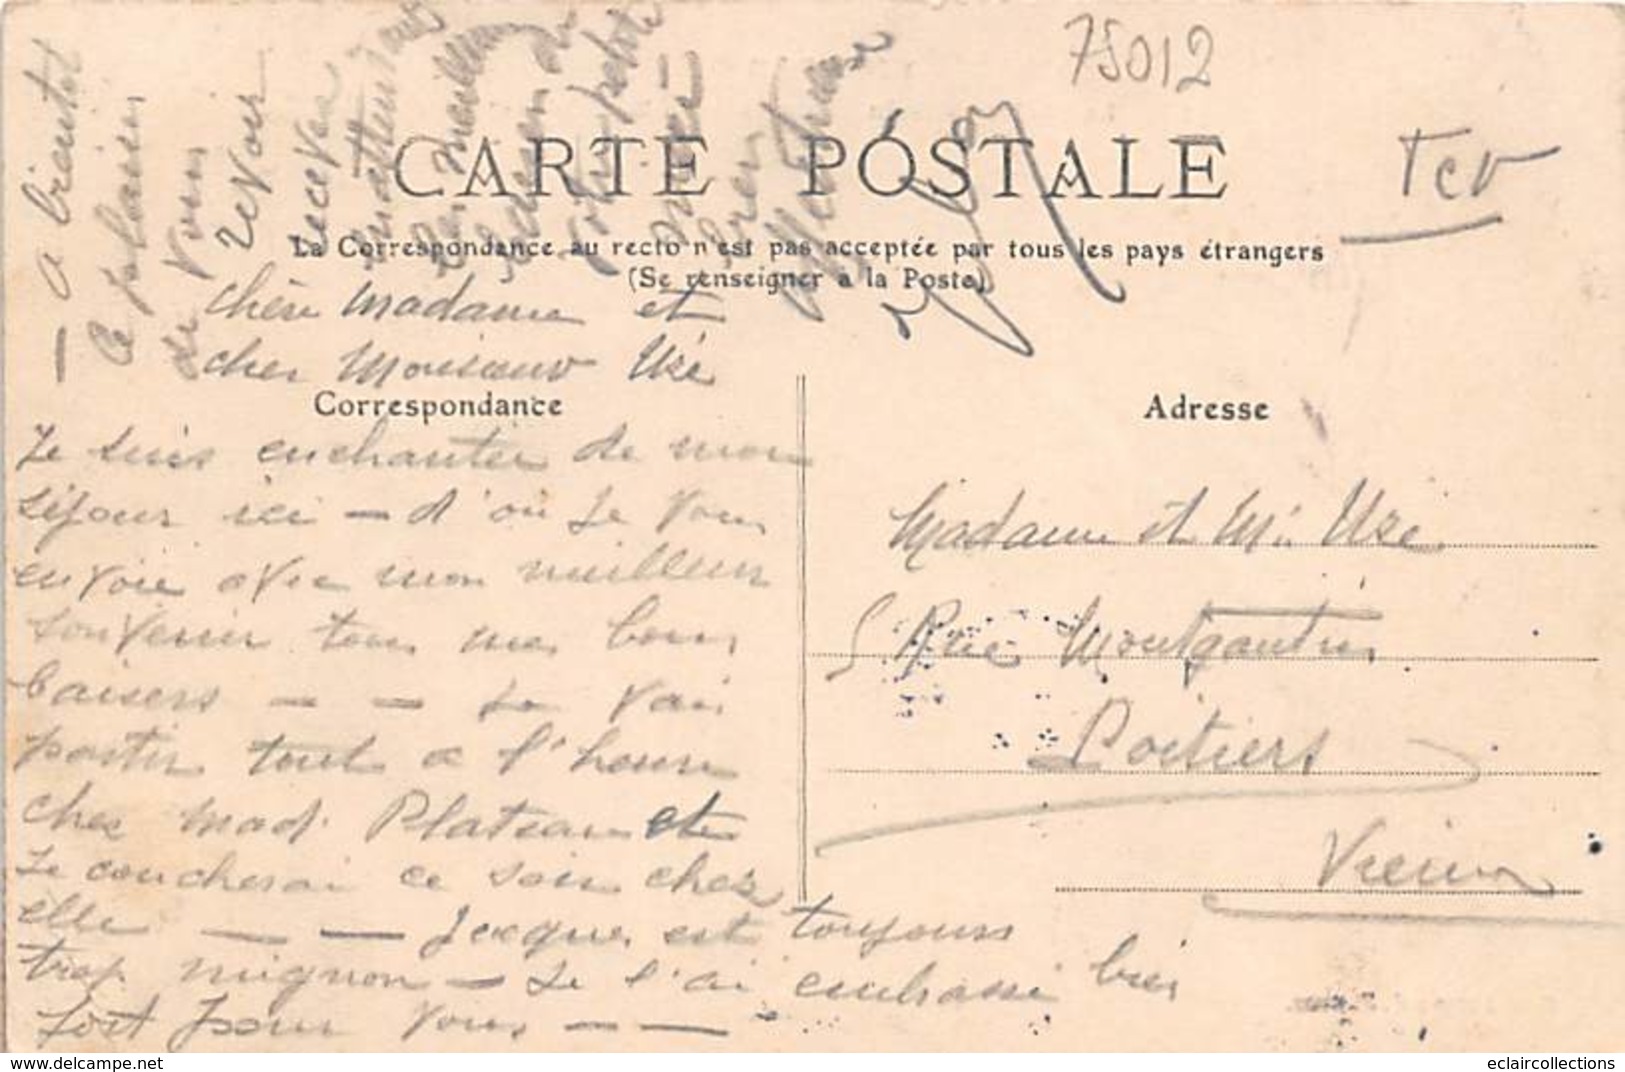 75012
Tcv
CARTE POSTALE
La Correspondance au recto n'est pas acceptée par tous les pays étrangers
(Se renseigner à la Poste)
Chère Madame et
cher Monsieur Uzé
Correspondance
Je suis enchanter de mon
séjour ici — d'où je vous
envoie avec mon meilleur
souvenir tous mes bons
baisers — — Je vais
partir tout à l'heure
chez Mad. Plateau et
Je coucherai ce soir chez
elle — — Jacques est toujours
trop mignon — Je l'ai embrassé bien
fort pour vous — —
— A bientot
le plaisir
de vous
revoir
recevez
en attendant
les meilleurs
votre petite
bien
Adresse
Madame et Mr Uzé
5 Rue Montgautier
Poitiers
Vienne
eclaircollections